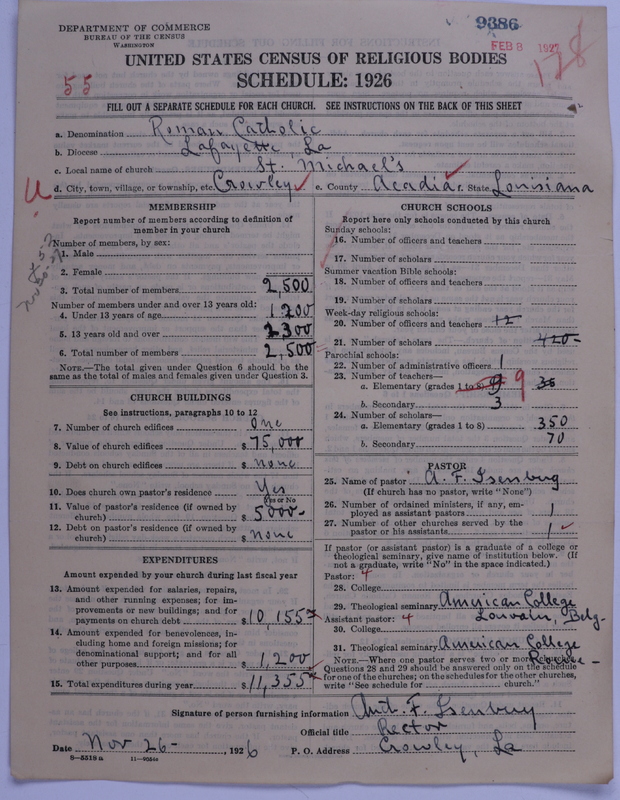 DEPARTMENT OF COMMERCE
BUREAU OF THE CENSUS
WASHINGTON
9386
FEB 8 1927
128
UNITED STATES CENSUS OF RELIGIOUS BODIES
SCHEDULE: 1926
55
FILL OUT A SEPARATE SCHEDULE FOR EACH CHURCH. SEE INSTRUCTIONS ON THE BACK OF THIS SHEET
a. Denomination Roman Catholic
b. Diocese Lafayette, La
c. Local name of church St. Michael's
d. City, town, village, or township, etc. Crowley e. County Acadia f. State Louisiana
MEMBERSHIP
Report number of members according to definition of
member in your church
Number of members, by sex:
1. Male
2. Female
3. Total number of members 2,500
Number of members under and over 13 years old:
4. Under 13 years of age 1200
5. 13 years old and over 2300
6. Total number of members 2,500
NOTE.—The total given under Question 6 should be the
same as the total of males and females given under Question 3.
CHURCH BUILDINGS
See instructions, paragraphs 10 to 12
7. Number of church edifices One
8. Value of church edifices $ 75,000
9. Debt on church edifices $ none
10. Does church own pastor's residence Yes
Yes or No
11. Value of pastor's residence (if owned by
church) $ 5000-
12. Debt on pastor's residence (if owned by
church) $ none
EXPENDITURES
Amount expended by your church during last fiscal year
13. Amount expended for salaries, repairs,
and other running expenses; for im-
provements or new buildings; and for
payments on church debt $ 10,155
14. Amount expended for benevolences, in-
cluding home and foreign missions; for
denominational support; and for all
other purposes $ 1,200
15. Total expenditures during year $ 11,355
CHURCH SCHOOLS
Report here only schools conducted by this church
Sunday schools:
16. Number of officers and teachers
17. Number of scholars
Summer vacation Bible schools:
18. Number of officers and teachers
19. Number of scholars
Week-day religious schools:
20. Number of officers and teachers 12
21. Number of scholars 420-
Parochial schools:
22. Number of administrative officers 1
23. Number of teachers—
a. Elementary (grades 1 to 8) 9 9 35
b. Secondary 3
24. Number of scholars—
a. Elementary (grades 1 to 8) 350
b. Secondary 70
PASTOR
25. Name of pastor A. F. Isenburg
(If church has no pastor, write "None")
26. Number of ordained ministers, if any, em-
ployed as assistant pastors 1
27. Number of other churches served by the
pastor or his assistants 1
If pastor (or assistant pastor) is a graduate of a college or
theological seminary, give name of institution below. (If
not a graduate, write "No" in the space indicated.)
Pastor: 4
28. College
29. Theological seminary American College
Louvain, Belg-
Assistant pastor: 4
30. College
31. Theological seminary American College
NOTE.—Where one pastor serves two or more churches,
Questions 28 and 29 should be answered only on the schedule
for one of the churches; on the schedules for the other churches,
write "See schedule for church."
Signature of person furnishing information Ant. F. Isenburg
Official title Rector
Date Nov 26- , 1926 P. O. Address Crowley, La
8—5518a 11—90566